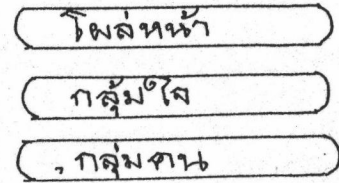 โผล่หน้า
กลุ้มใจ
กลุ่มคน